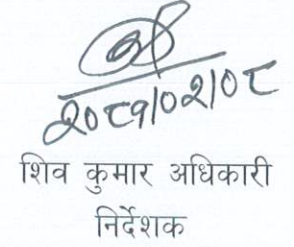 २०८१/०२/०८
शिव कुमार अधिकारी
निर्देशक